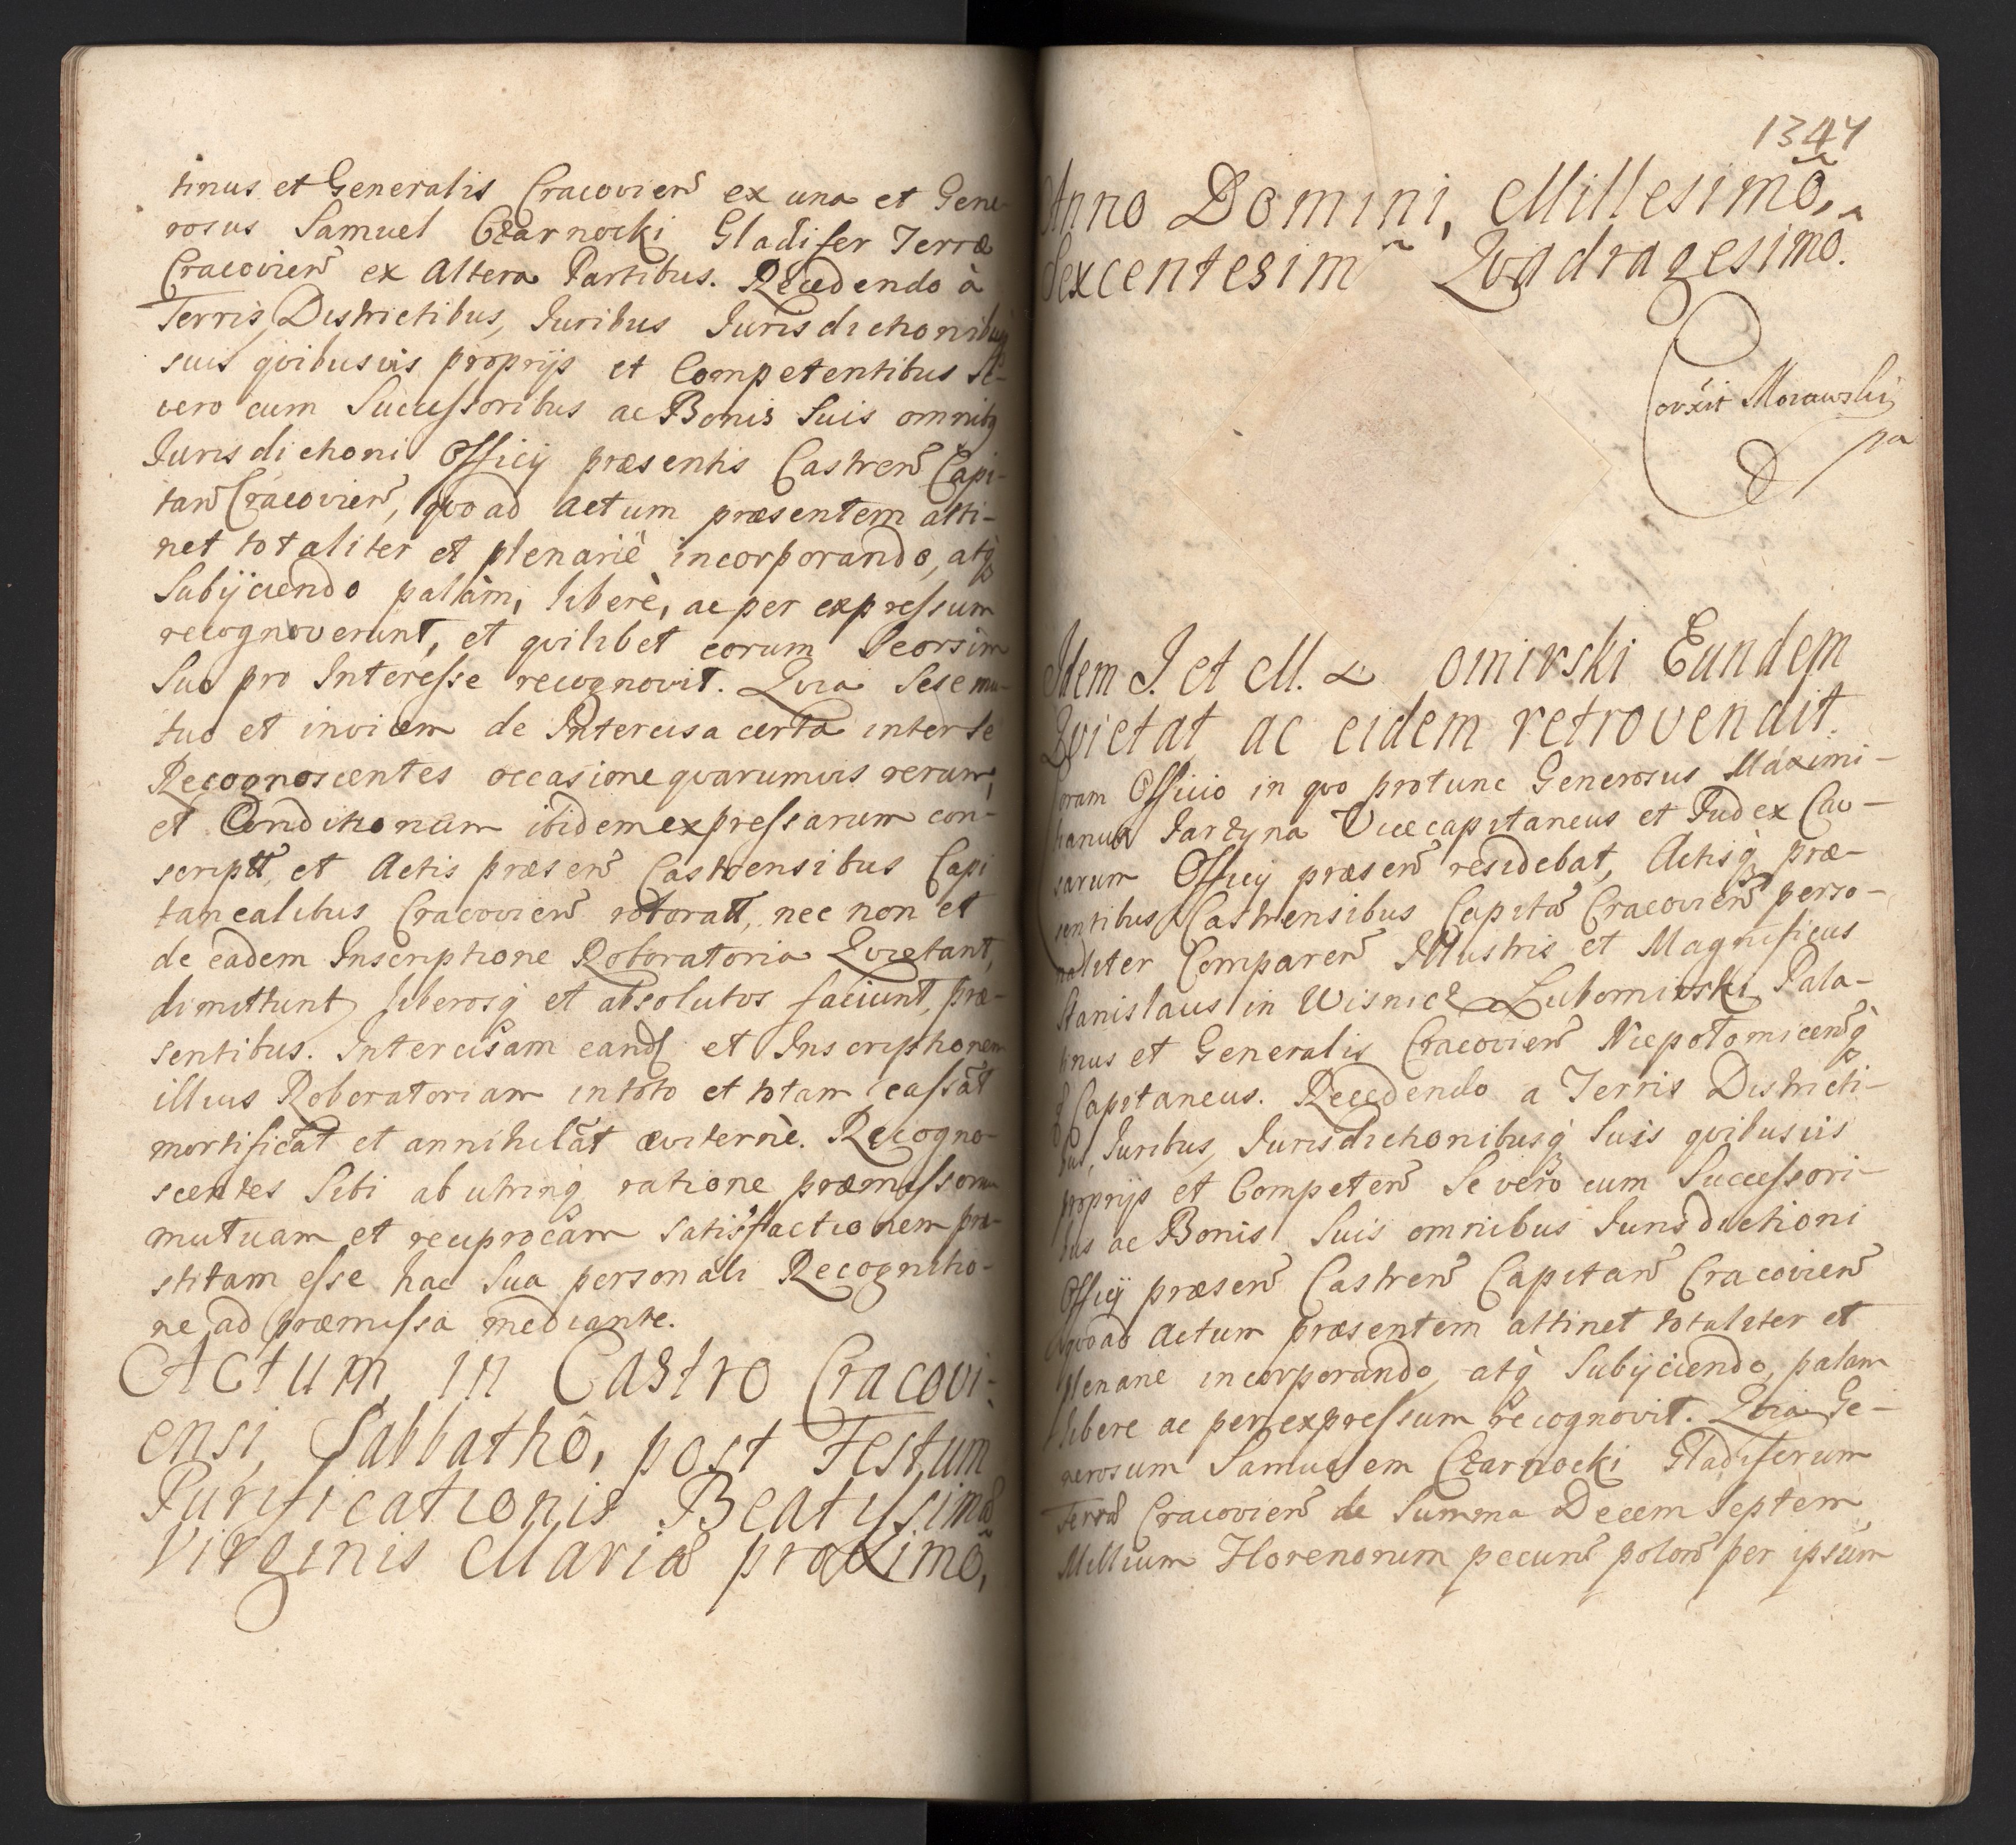 tinus et Generalis Cracovien̄ ex una et Gene-
rosus Samuel Czarnocki Gladifer Terræ
Cracovien̄ ex Altera Partibus. Recedendo à
Terris, Districtibus, Iuribus Iurisdictionibus
suis qvibusvis proprijs et Competentibus se-
vero cum Successoribus ac Bonis Suis omnibq
Iurisdictioni Officij præsentis Castren̄ Capi-
tan̄ Cracovien̄, qvoad Actum præsentem atti-
net totaliter et plenariè incorporando, atq̢
Subijciendo palàm, liberè, ac per expressum
recognoverunt, et qvilibet eorum Seorsim
Suo pro Interesse recognovit. Qvia Sese mu-
tuo et invicem de Intercisa certa inter se
Recognoscentes occasione qvarumvis rerum,
et Conditionum ibidem expressarum con-
scriptt, et Actis præsen̄ Castrensibus Capi
tanealibus Cracovien̄ roboratt, nec non et
de eadem Inscriptione Roboratoria Qvietant,
dimittunt liberosq̢ et absolutos faciunt, præ-
sentibus. Intercisam eand̄ et Inscriptionem
illius Roboratoriam in toto et totam cassāt
mortificāt et annihilāt æviternè. Recogno-
scentes Sibi ab utrinq̢ ratione præmissorum
mutuam et reciprocam satisfactionem præ-
stitam esse hac Sua personali Recognitio-
ne ad præmissa mediante.
Actum in Castro Cracovi-
ensi, Sabbathô, post Festum
Purificationis Beatissimæ
Virginis Mariæ proximô,
1347
Anno Domini, Millesimô,
Sexcentesim Qvadragesimô.
Corrẋit Morawski
pa
Idem I. et M. L omirski Eundem
Qvietat ac eidem retrovendit.
Coram Officio in qvo protunc Generosus Maximi-
lianus Iarzyna Vicecapitaneus et Iudex Cau-
sarum Officij præsen̄ residebat, Actisq̢ præ-
sentibus Castrensibus Capitan̄ Cracovien̄ perso-
naliter Comparen̄ Illustris et Magnificus
Stanislaus in Wisnicz Lubomirski Pala-
tinus et Generalis Cracovien̄ Niepolomicen̄q̢
Capitaneus. Recedendo a Terris Districti-
bus, Iuribus, Iurisdictionibusq̢ Suis qvibusvis
proprijs et Competen̄ Se verò cum Successori-
bus ac Bonis Suis omnibus Iurisdictioni
Officij præsen̄ Castren̄ Capitan̄ Cracovien̄
qvoad Actum præsentem attinet totaliter et
plenarie incorporando, atq̢ Subijciendo, palam
libere ac per expressum recognovit. Qvia Ge-
nerosum Samuelem Czarnocki Gladiferum
Terræ Cracovien̄ de Summa Decem Septem
Millium Florenorum pecun̄ polon̄ per ipsum